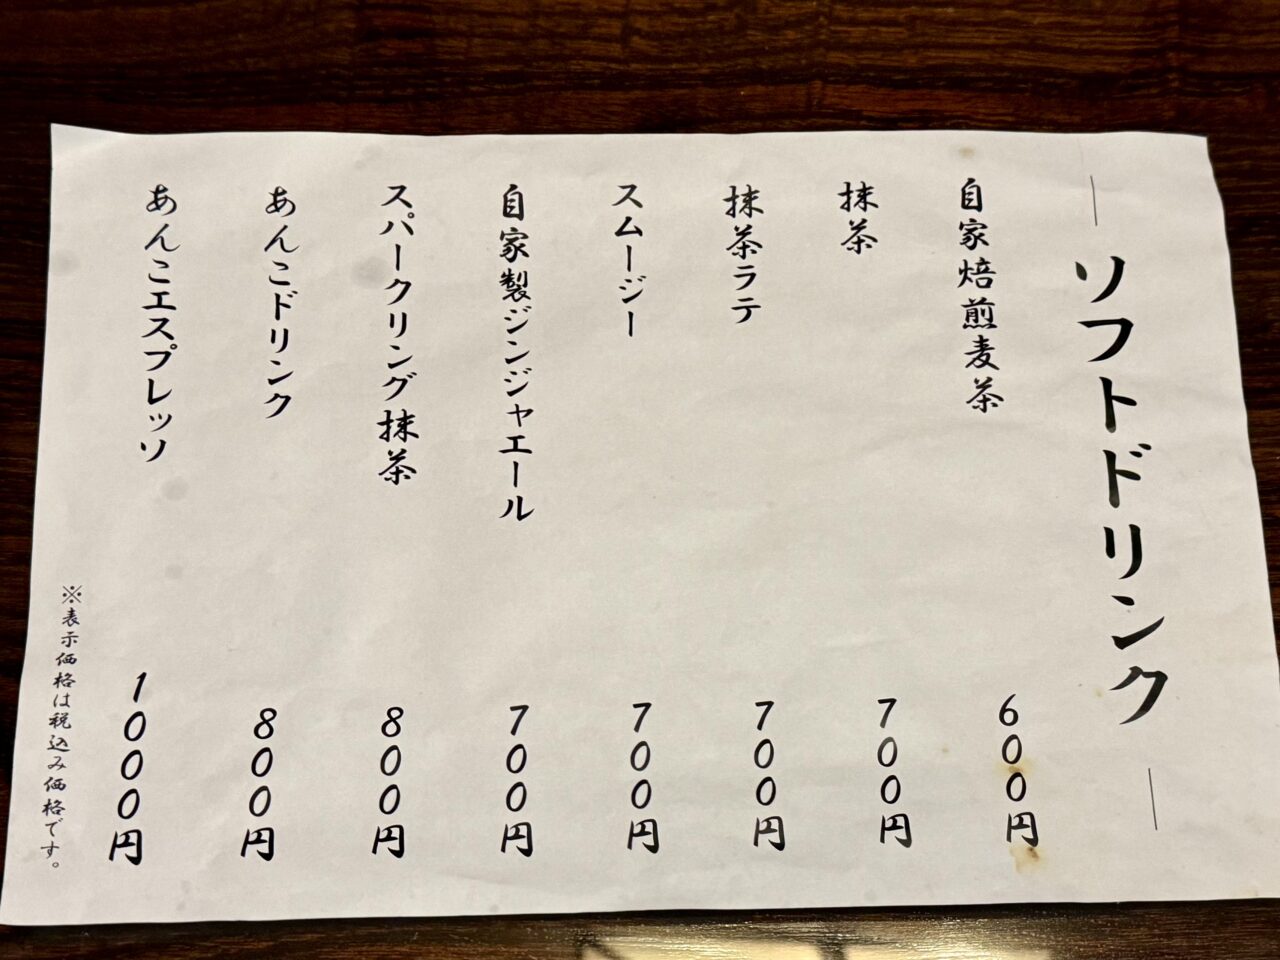 ソフトドリンク
自家焙煎麦茶 600円
抹茶 700円
抹茶ラテ 700円
スムージー 700円
自家製ジンジャエール 700円
スパークリング抹茶 800円
あんこドリンク 800円
あんこエスプレッソ 1000円
※表示価格は税込み価格です。